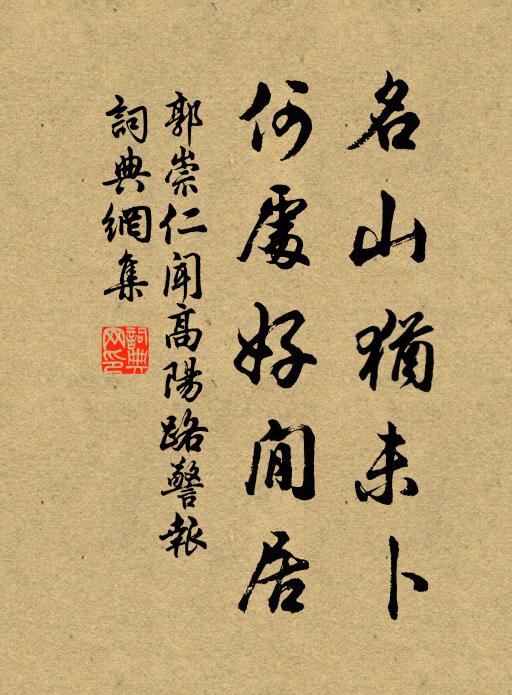 名山猶未卜
何處好閒居
郭崇仁聞高陽路警報
詞典網集
詞典網印